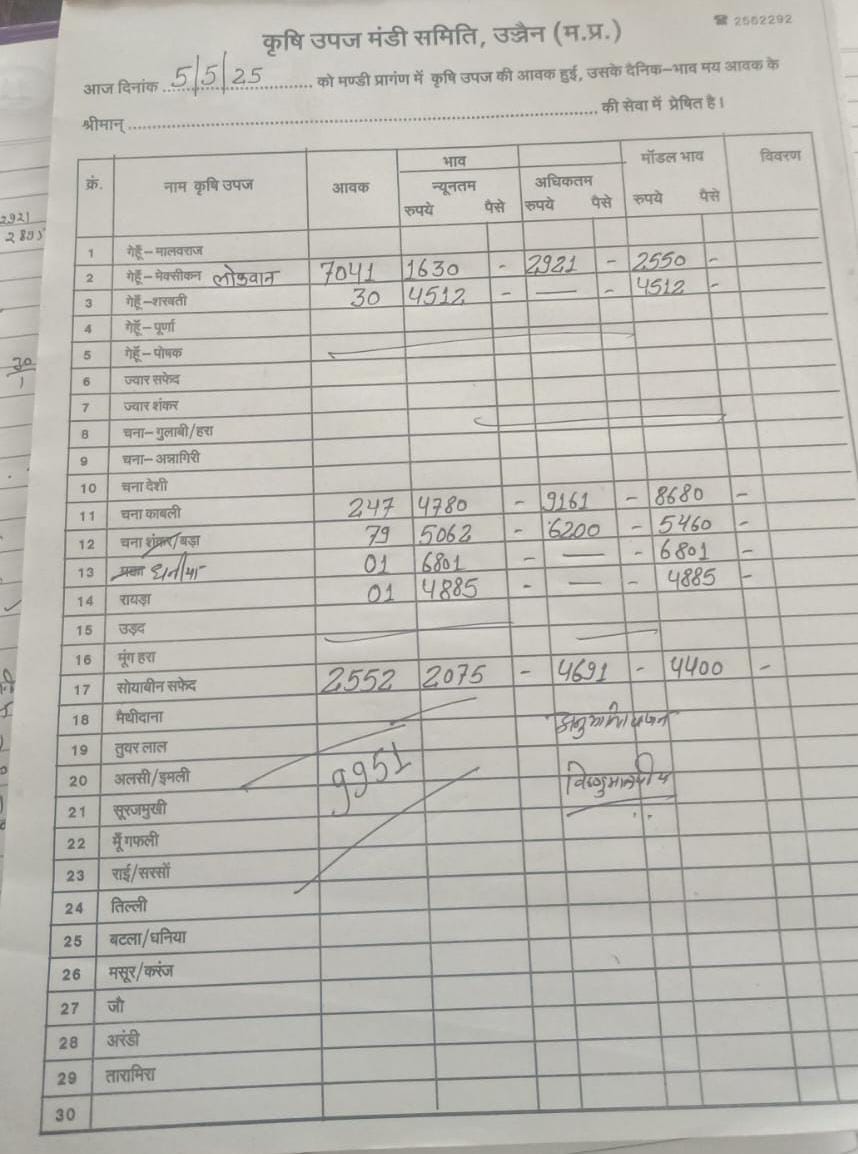 ☎ 2562292
कृषि उपज मंडी समिति, उज्जैन (म.प्र.)
आज दिनांक 5/5/25 को मण्डी प्रागंण में कृषि उपज की आवक हुई, उसके दैनिक-भाव मय आवक के
श्रीमान् की सेवा में प्रेषित है।
क्रं. नाम कृषि उपज आवक भाव मॉडल भाव विवरण
न्यूनतम अधिकतम
रुपये पैसे रुपये पैसे रुपये पैसे
1 गेहूँ-मालवराज
2 गेहूँ-मेक्सीकन लोकवान 7041 1630 - 2921 - 2550 -
3 गेहूँ-शरबती 30 4512 - — - 4512 -
4 गेहूँ-पूर्णा
5 गेहूँ-पोषक
6 ज्वार सफेद
7 ज्वार शंकर
8 चना-गुलाबी/हरा
9 चना-अन्नागिरी
10 चना देशी
11 चना काबली 247 4780 - 9161 - 8680 -
12 चना शंकर/बड़ा 79 5062 - 6200 - 5460 -
13 मक्का धनीया 01 6801 - — - 6801 -
14 रायड़ा 01 4885 - — - 4885 -
15 उड़द
16 मूंग हरा
17 सोयाबीन सफेद 2552 2075 - 4691 - 4400 -
18 मैथीदाना
19 तुवर लाल
20 अलसी/इमली 9951
21 सूरजमुखी
22 मूँगफली
23 राई/सरसों
24 तिल्ली
25 बटला/धनिया
26 मसूर/करंज
27 जौ
28 अरंडी
29 तारामिरा
30
2921
30
1